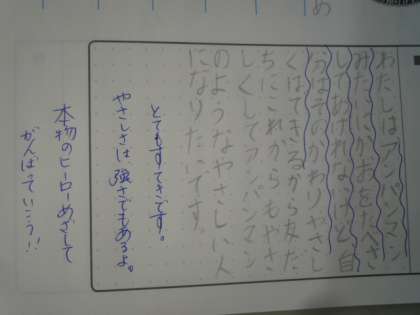 わたしはアンパンマン
みたいにかおをたべさ
してあげれないけど自
分はそのかわりやさし
くはできるから友だ
ちにこれからもやさ
しくしてアンパンマン
のようなやさしい人
になりたいです。
とてもすてきです。
やさしさは強さでもあるよ。
本物のヒーローめざして
がんばっていこう!!